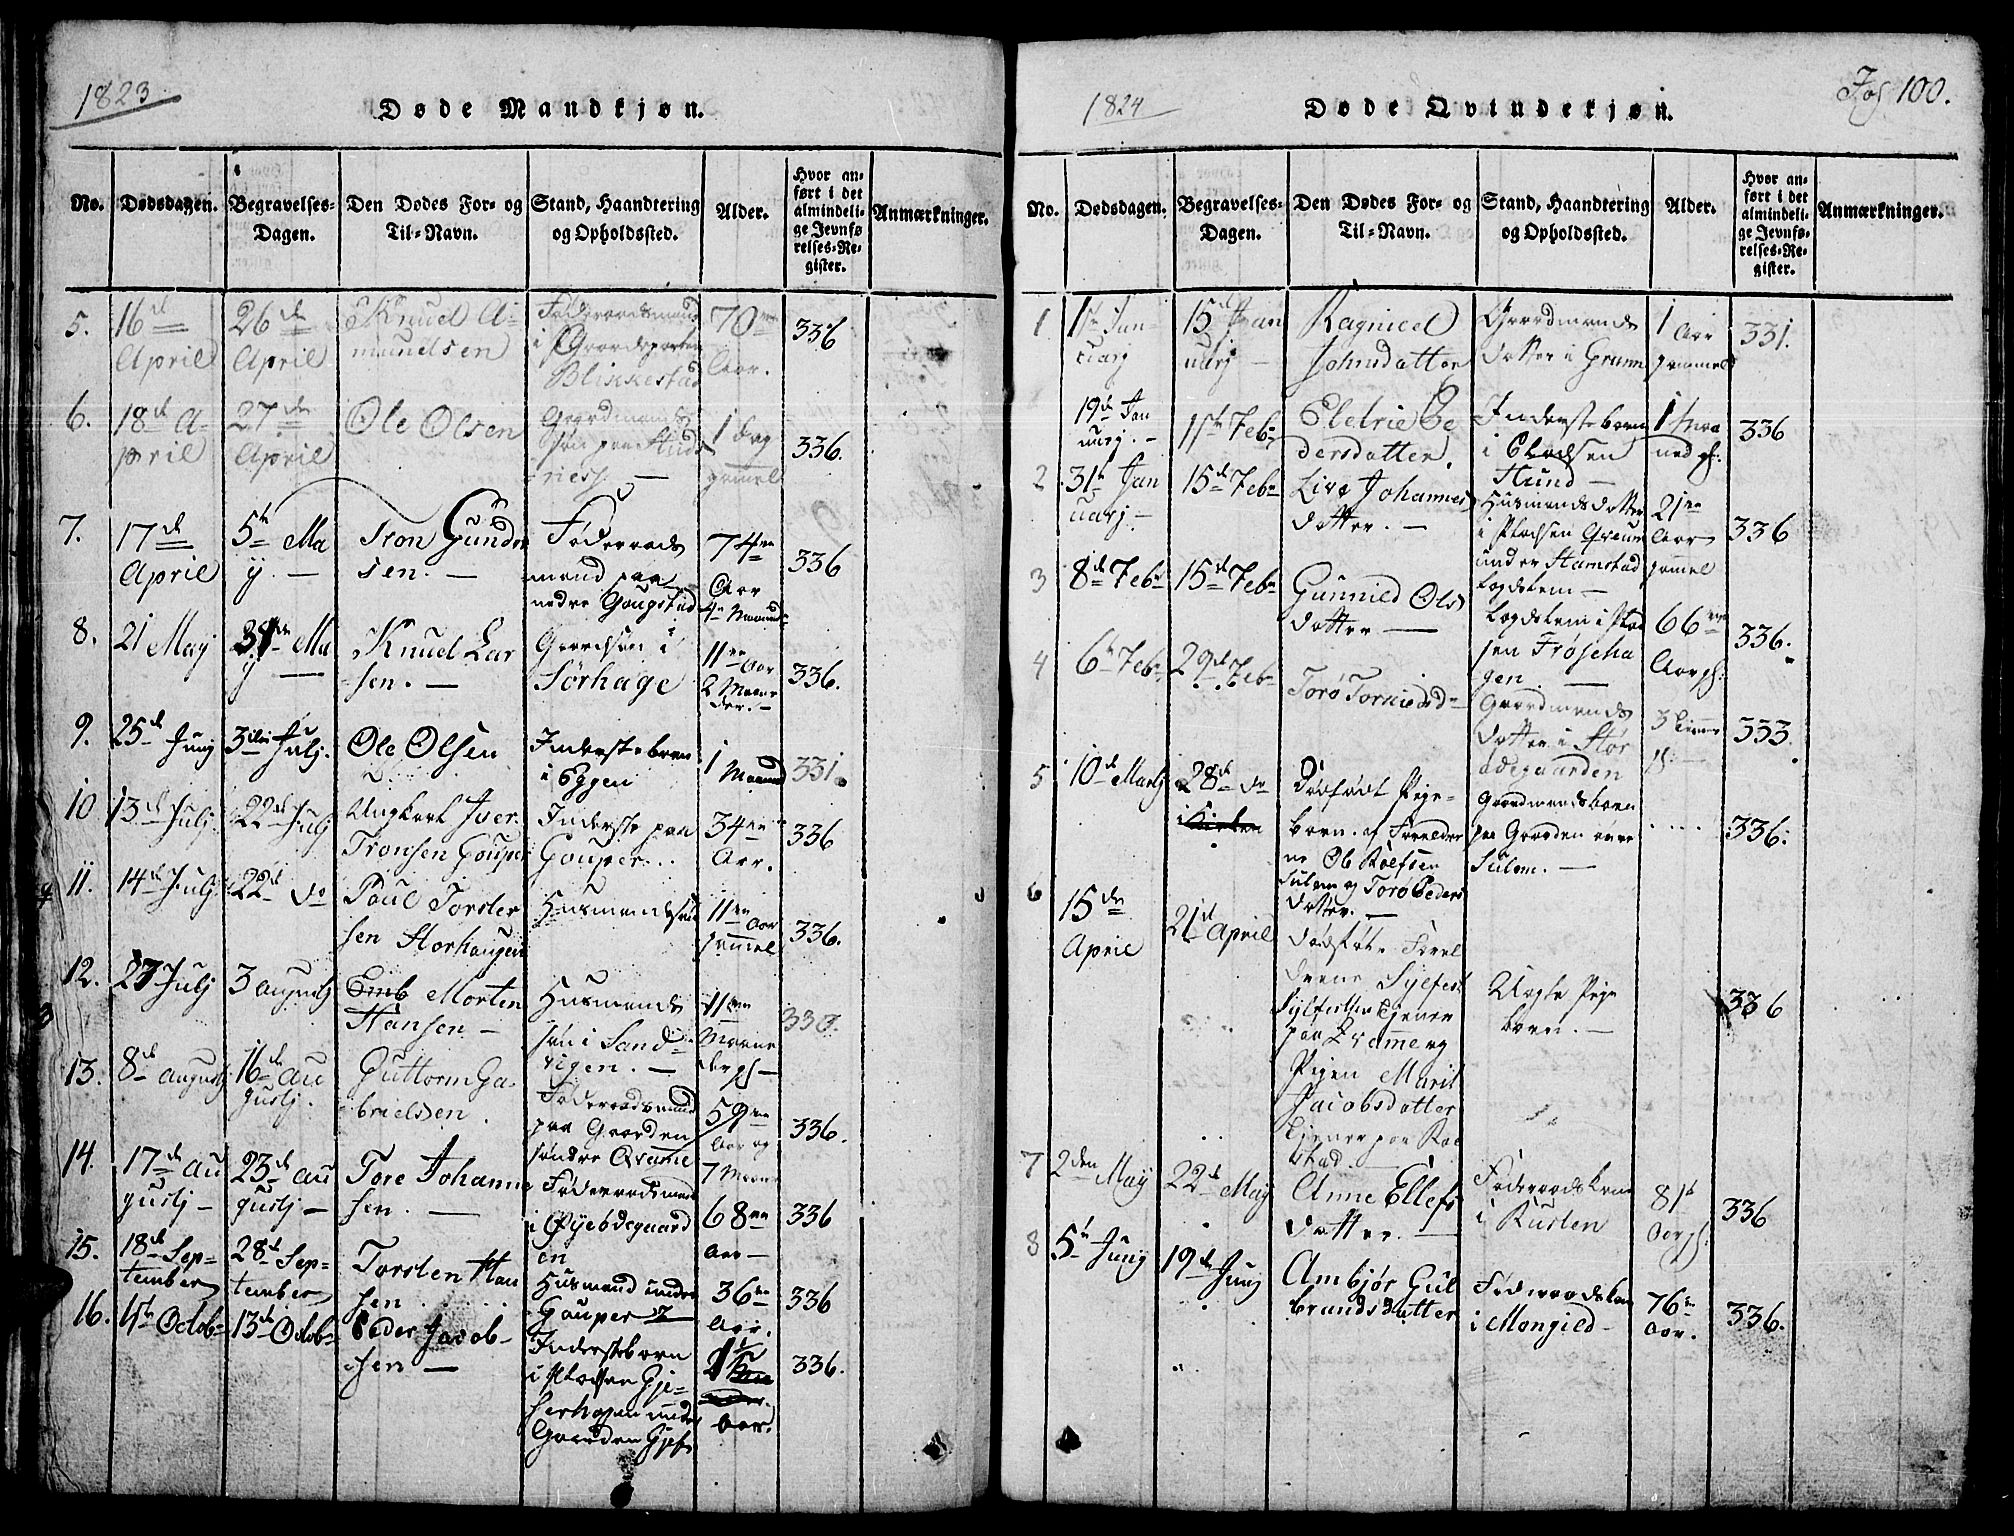 1823.
Døde Mandkjøn.
No.
Dødsdagen.
Begravelses-
Dagen.
Den Dødes For- og
Til-Navn.
Stand, Haandtering
og Opholdssted.
Alder.
Hvor an-
ført i det
almindeli-
ge Jevnfø-
relses-Re-
gister.
Anmærkninger.
5.
16de
April
26de
April
Knud A-
mundsen
Føderaadsmand
i Gaardsparten
Blikkestad
70
Aar.
336
6.
18de A-
pril
27de
April
Ole Olsen
Gaardmands
søn paa
1 Dag
gammel
336.
7.
17de
April
5te Ma
y. —
Tron Gunder
sen. —
Føderaads
mand paa
nedre Gougstad
74
Aar
4 Maaned
336
8.
21 May
Ma
y —
Knud Lar
sen. —
Gaardsøn i
Sørhage
11 Aar
2 Maane
der. —
336.
9.
25de Juny
3die July.
Ole Olsen
Inderstebarn
i Eggen
1 Maaned
331.
10
13de July
22de July
Ungkarl Iver
Tronsen Gouper
Inderste paa
Gouper
34
Aar.
336
11.
14de July
22de do
Poul Torster
sen Storhaugen
Husmandssøn
11 Aar
gammel
336.
12.
27 July
3 augusty
Morten
Hansen —
Husmands
søn i Sand-
vigen. —
11
Maane
der gl —
330.
13.
8de augusty
16de Au
gusty.
Guttorm Ga-
brielsen.
Føderaadsmand
paa Gaarden
søndre Qvame
59
Aar og
7 Maan
336.
14.
17de Au
gusty —
23de Au
gusty —
Tore Johanne
sen. —
Føderaadsmand
i Øyebdegaard
en
68
Aar —
336
15.
18de Sep-
tember
28de Sep-
tember
Torsten Han
sen
Husmand under
Gouper
36
Aar.
336
16.
4de Octob-
13de Octob-
Peder Jacob-
sen —
Inderstebarn
i Pladsen Gje-
serhogen under
Gaarden
Aar.
336.
1824
Døde Qvindekjøn.
Fol 100.
No.
Dødsdagen.
Begravelses-
Dagen.
Den Dødes For- og
Til-Navn.
Stand, Haandtering
og Opholdssted.
Alder.
Hvor an-
ført i det
almindeli-
ge Jevnfø-
relses-Re-
gister.
Anmærkninger.
1
1ste Jan-
uary
15de Jan
uary —
Ragnild
Johnsdatter
Gaardmands
datter i Grunn
1 Aar
gammel
331.
19de Jan
uary. —
1ste Feb
Pe
dersdatter.
Inderstebarn
i Pladsen
Hund —
1 Maa
ned gl:
336
2
31te Jan
uary —
15de Feb
Live Johannes
datter. —
Husmandsdatter
i Pladsen
under Hamstad
21
Aar
gamel
336
3
8de Feb
15de Feb
Gunnild Ols
datter —
Lægdslem —
Lægdslem i Plad
sen Frøseha
gen. —
66
Aar gl.
336.
4
6te Feb
29de Feb
Torø
Gaardmands
datter i Stør
degaarden
3 Timer
gl. —
333.
5
10de Marty
28de do
i Kirken
Dødfødt Pige-
barn. af Forældre
ne Ole Rolfsen
Sulem og Torø Peders
datter. —
Gaardmandsbarn
paa Gaarden øvre
Sulem. —
336.
6
15de
April
21de April
Dødfødt. Foræl
drene Sylfest
Sylfestsen tjener
paa Qvame og
Pigen Marit
Jacobsdatter
tjener paa
stad.
Uægte Pige
barn. —
336
7
2den May
22de May
Anne Ellefs
datter. —
Føderaadskone
i Rusten
81
Aar gl.
336
8
5te Juny
19de Juny
Ambjør Gul
brandsdatter
Føderaadskone
i Mongild —
76
Aar.
336.